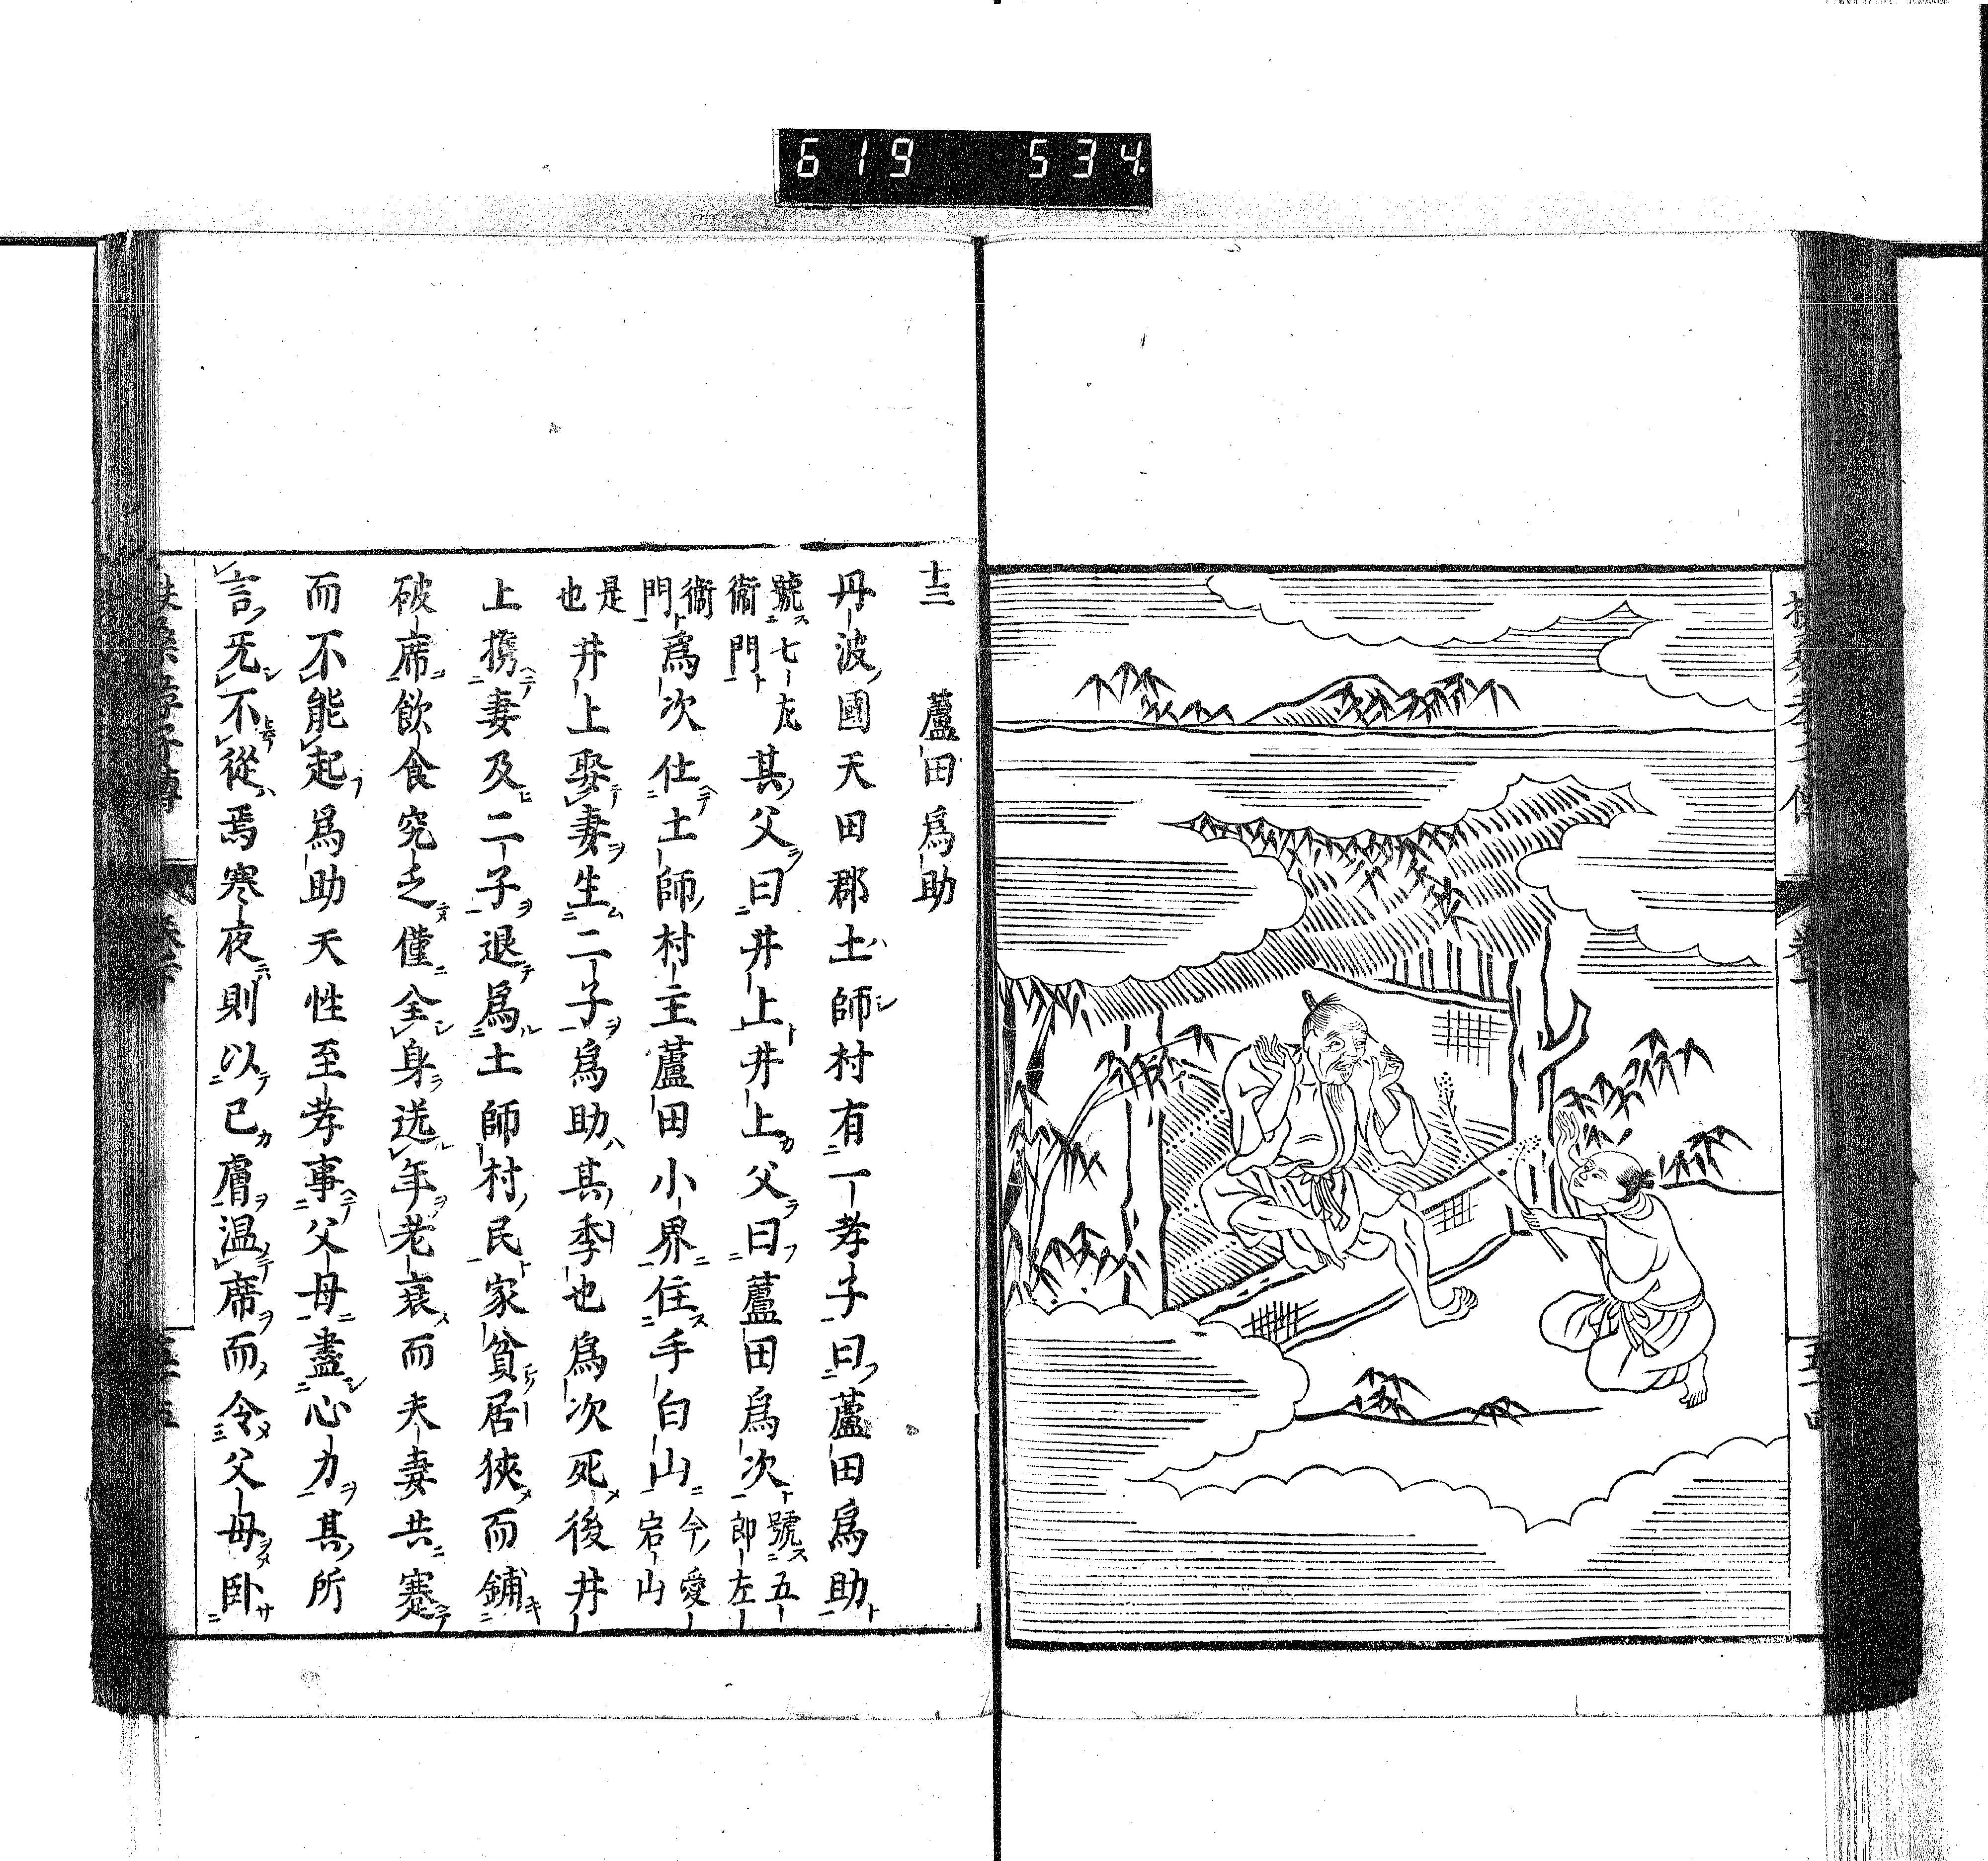 619 534
十三 蘆田爲助
丹波國天田郡土師村有一孝子曰蘆田爲助
其父曰井上井上父曰蘆田爲次號五郎左
衞門號七左
衞門爲次仕土師村主蘆田小界住手白山今愛宕山
是也井上娶妻生二子爲助其季也爲次死後井
上携妻及二子退爲土師村民家貧居狹而鋪
破席飲食究乏僅全身迄年老衰而夫妻共蹇
而不能起爲助天性至孝事父母盡心力其所
言无不從焉寒夜則以己膚温席而令父母臥